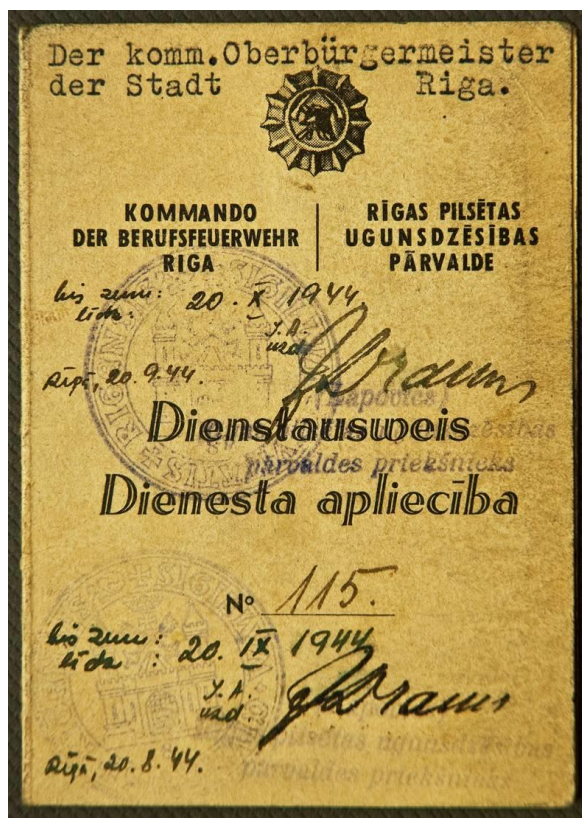 Der komm.Oberbürgermeister
der Stadt Riga.
KOMMANDO
DER BERUFSFEUERWEHR
RIGA
RĪGAS PILSĒTAS
UGUNSDZĒSĪBAS
PĀRVALDE
bis zum: 20. X 1944.
līdz:
J.A.
uzd.
Rīgā, 20.9.44.
Dienstausweis
pārvaldes priekšnieks
Dienesta apliecība
Nº 115.
bis zum: 20. IX 1944
līdz :
J.A.
uzd.
pilsētas ugunsdzēsības
Rīgā, 20.8.44.
pārvaldes priekšnieks